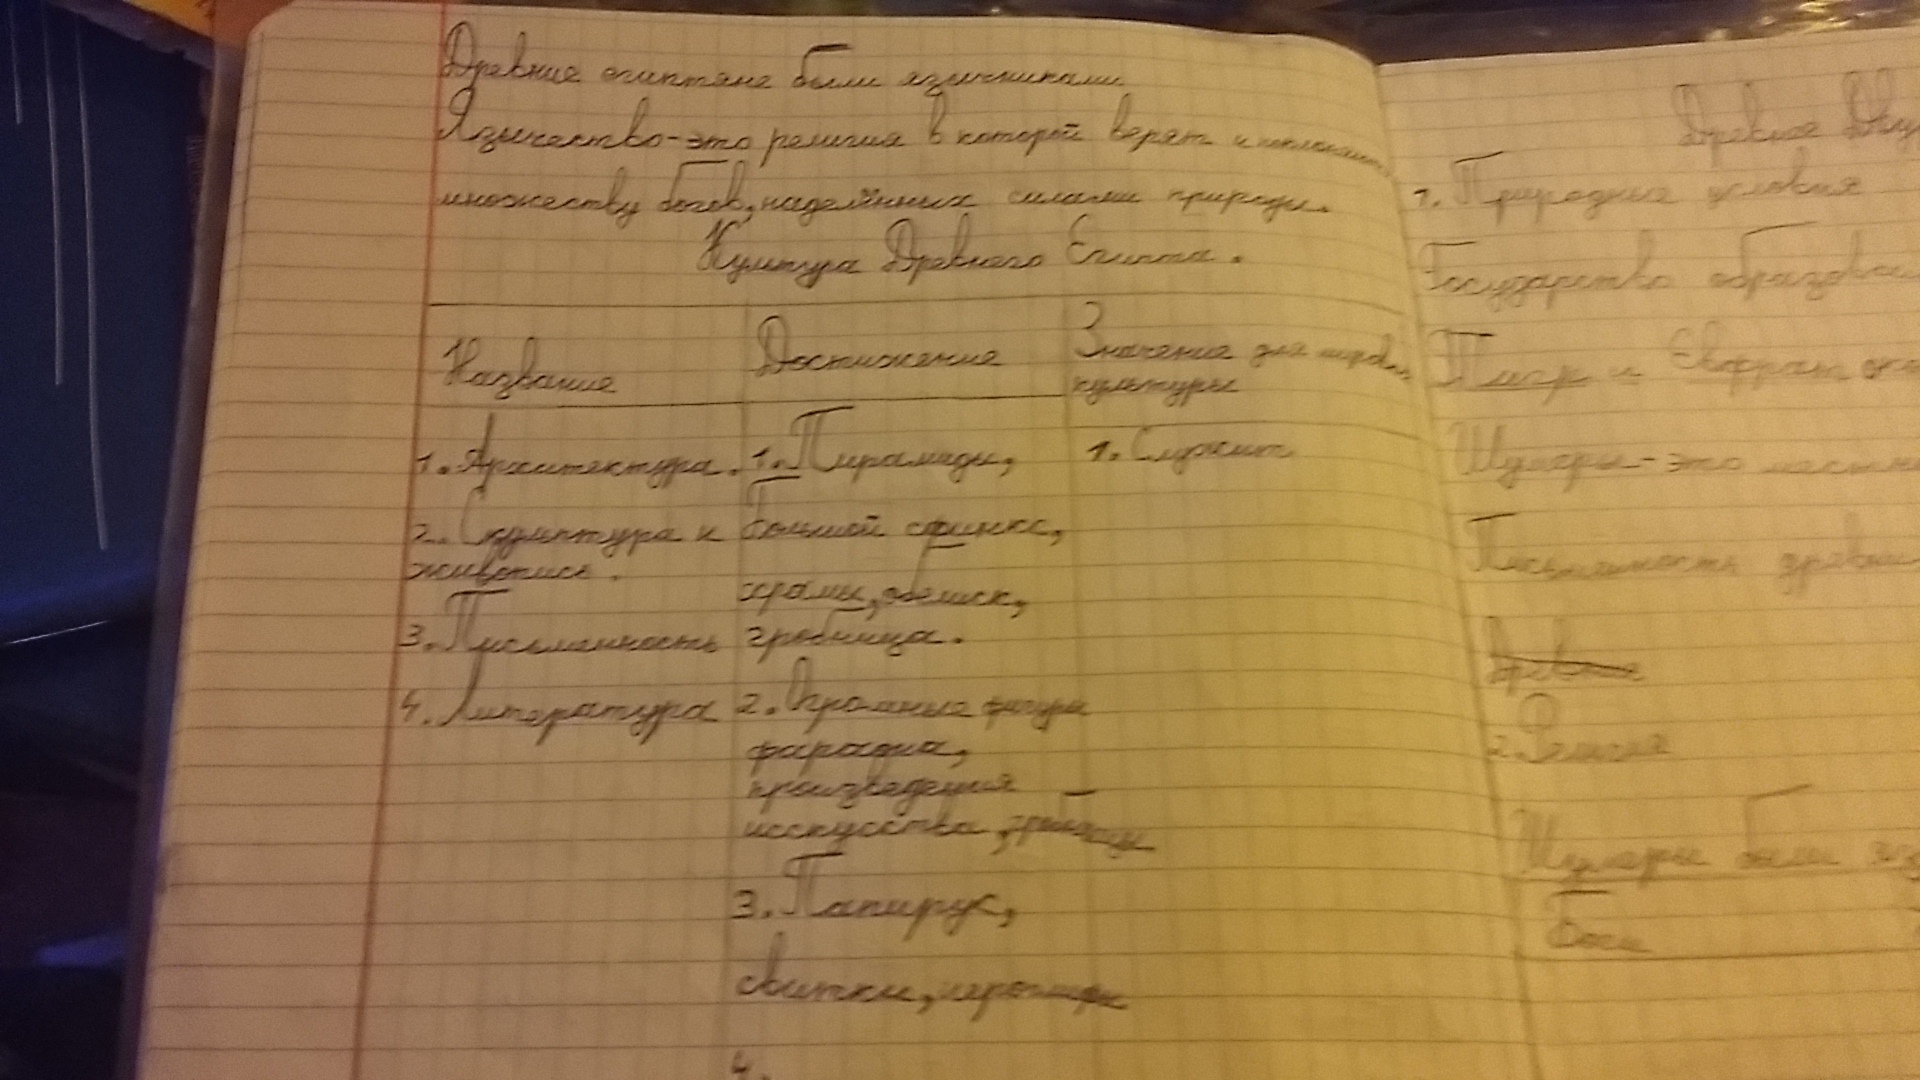 Древние египтяне были язычниками.
Язычество-это религия в которой верят и поклоняются
множеству богов, наделённых силами природы.
Культура Древнего Египта.
Название
Достижение
Значение для мировой
культуры
1. Архитектура.
2. Скульптура и
живопись.
3. Письменность
4. Литература
1. Пирамиды,
большой сфинкс,
храмы, обелиск,
гробница.
2. Огромные фигуры
фараона,
произведения
исскусства, гробницы
3. Папирус,
свитки, иероглифы
4.
1. Служит
Древнее
1. Природные условия
Государство
Тигр и Евфрат
Шумеры-это
Письменность
Древнее
2. Религия
Шумеры были
Боги